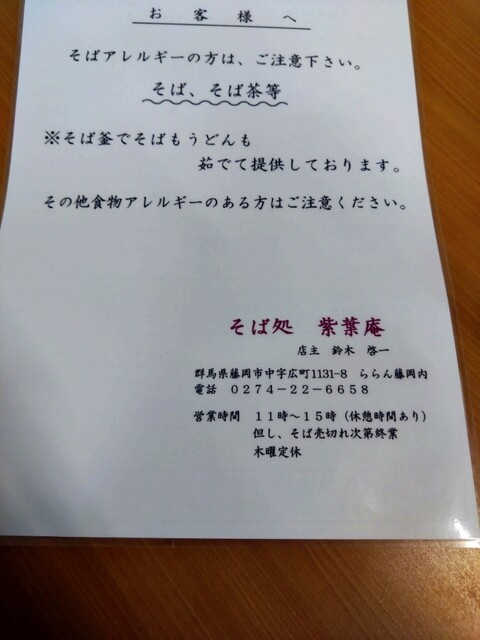 お客様へ
そばアレルギーの方は、ご注意下さい。
そば、そば茶等
※そば釜でそばもうどんも
茹でて提供しております。
その他食物アレルギーのある方はご注意ください。
そば処　紫葉庵
店主　鈴木　啓一
群馬県藤岡市中字広町1131-8　ららん藤岡内
電話　０２７４－２２－６６５８
営業時間　１１時～１５時（休憩時間あり）
但し、そば売切れ次第終業
木曜定休